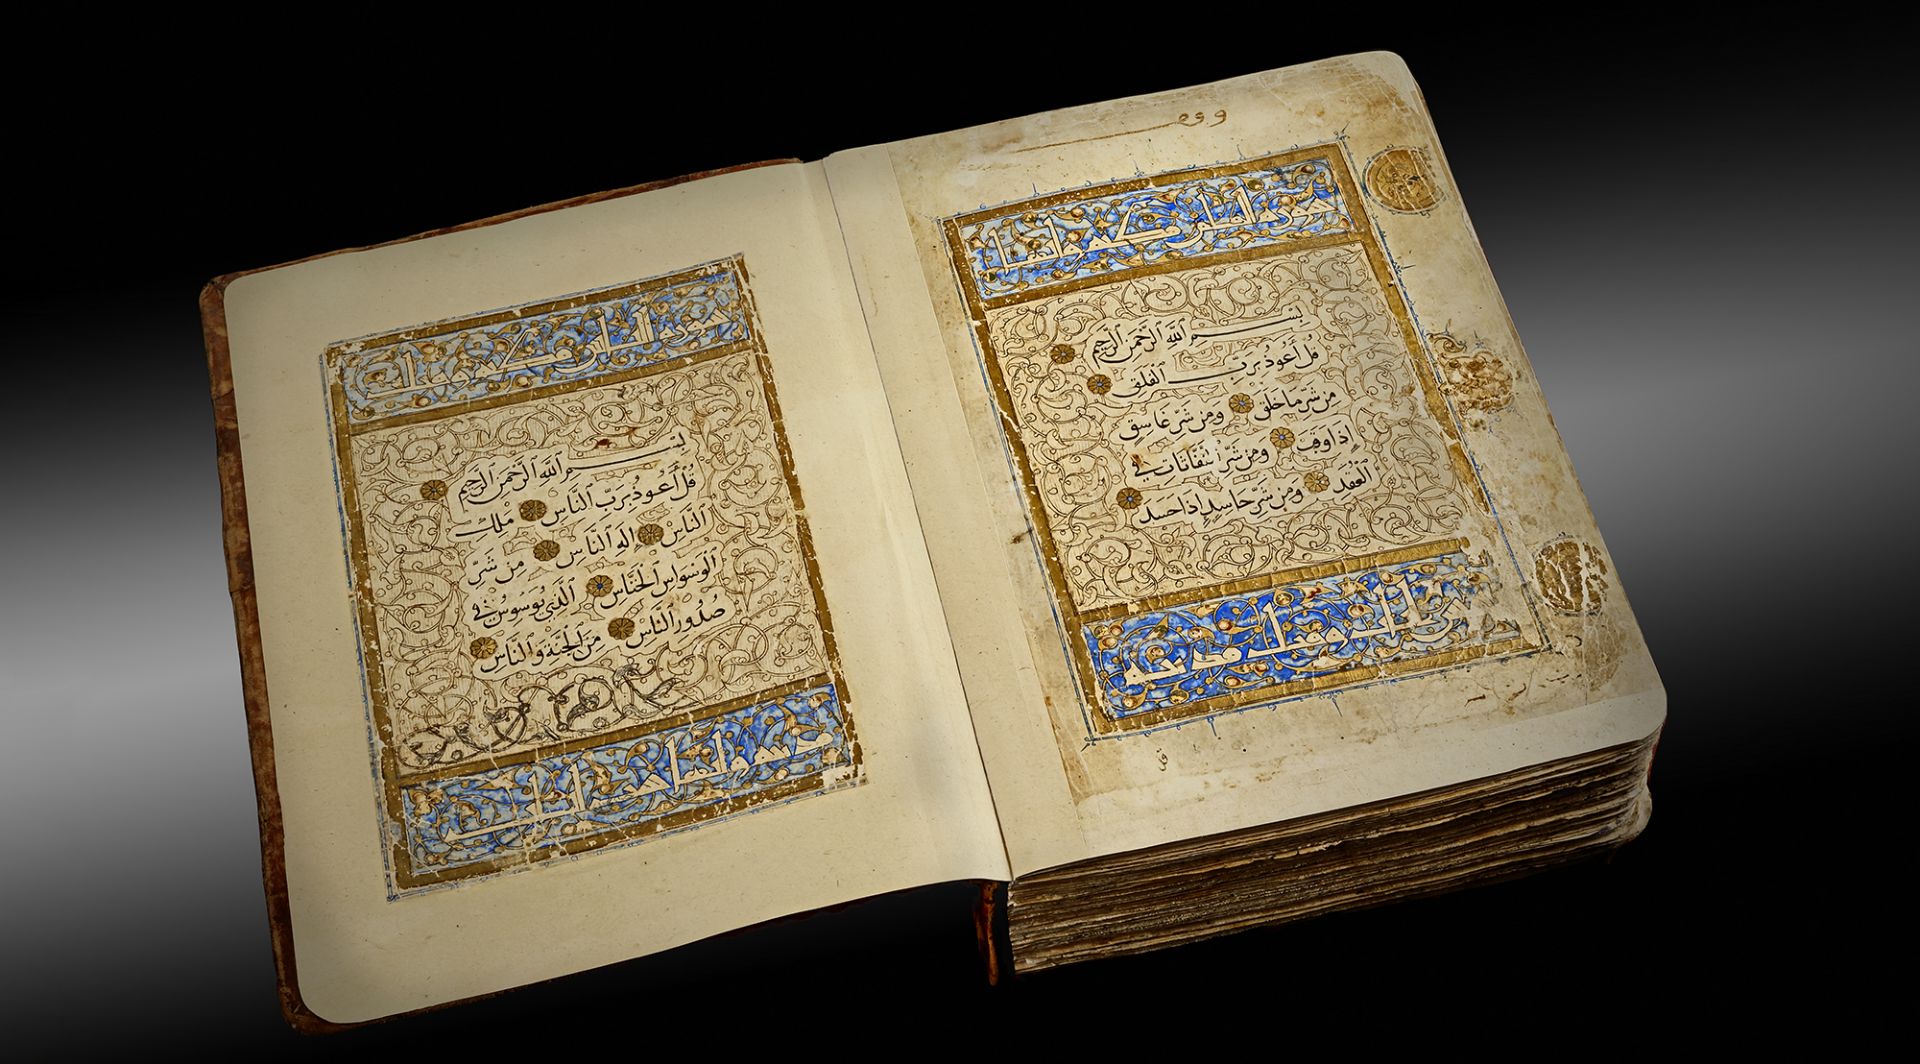 سورة الفلق مكية وآيها
بِسْمِ اللَّهِ الرَّحْمَنِ الرَّحِيمِ
قُلْ أَعُوذُ بِرَبِّ الْفَلَقِ
مِن شَرِّ مَا خَلَقَ وَمِن شَرِّ غَاسِقٍ
إِذَا وَقَبَ وَمِن شَرِّ النَّفَّاثَاتِ فِي
الْعُقَدِ وَمِن شَرِّ حَاسِدٍ إِذَا حَسَدَ
خمس آيات وقيل مدنية
سورة الناس مكية وقيل
بِسْمِ اللَّهِ الرَّحْمَنِ الرَّحِيمِ
قُلْ أَعُوذُ بِرَبِّ النَّاسِ مَلِكِ
النَّاسِ إِلَهِ النَّاسِ مِن شَرِّ
الْوَسْوَاسِ الْخَنَّاسِ الَّذِي يُوَسْوِسُ فِي
صُدُورِ النَّاسِ مِنَ الْجِنَّةِ وَالنَّاسِ
مدنية وآيها ست آيات